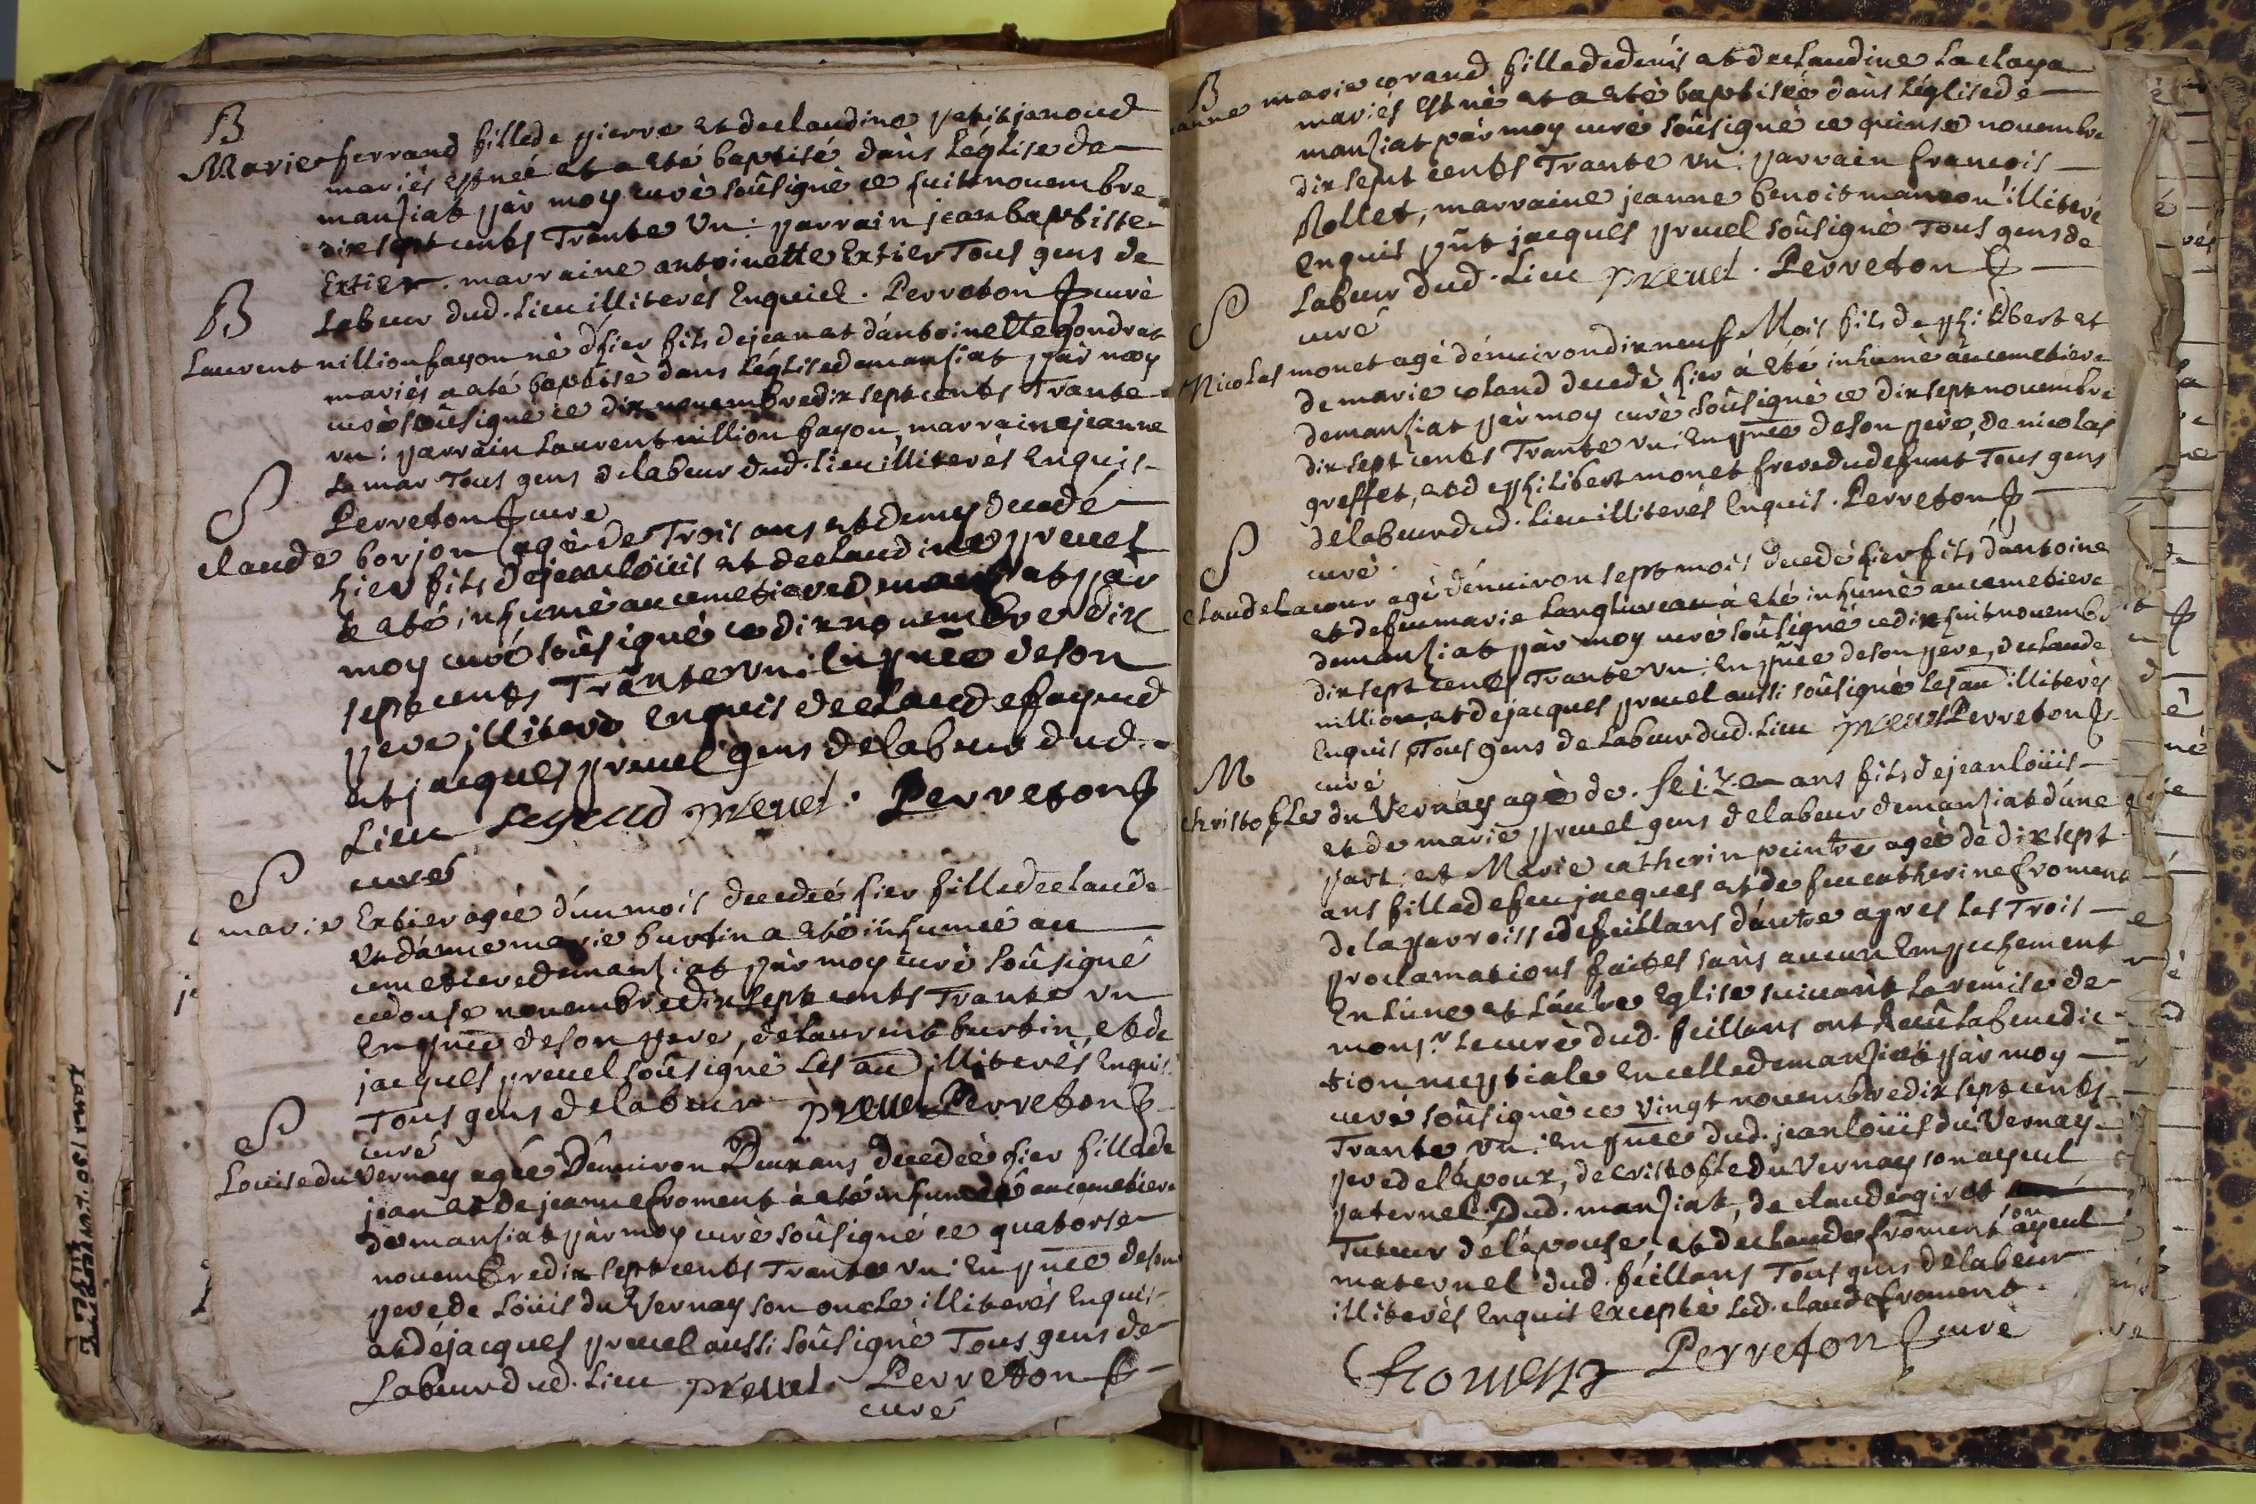 B
Marie ferrand fille de pierre et de claudine petitjanoud
mariés est neé et a eté baptisé dans l'église de
manziat par moy curé soûsigné ce huit novembre
dix sept cents Trante Un: parrain jean baptiste
Extier. marraine antoinette Extier Tous gens de
Labeur dud. Lieu illiterés Enquiet. Perreton curé
B
Laurent nillion fayon né d'hier fils de jean et d'antoinette gondrat
mariés a eté baptisé dans l'église de manziat par moy
curé soûsigné ce dix novembre dix sept cents Trante
vn: parrain Laurent nillion fayon, marraine jeanne
Lamar Tous gens de labeur dud. Lieu illiterés Enquis
Perreton curé
S
claude borjon agé de Trois ans et demy decedé
hier fils de jean loüis et de claudine prevel
a eté inhumé au cemetiere de manziat par
moy curé soûsigné ce dix novembre dix
sept cents Trante vn: En pñce de son
pere illiteré Enquis de claude
et jacques prevel gens de labeur dud.
Lieu prevel. Perreton
curé
S
marie Extier ageé d'un mois decedeé hier fille de claude
et d'anne marie burtin a eté inhumeé au
cemetiere de manziat par moy curé soûsigné
ce douse novembre dix sept cents Trante vn
En pñce de son pere, de Laurent burtin, et de
jacques prevel soûsigné Les au illiterés Enquis
Tous gens de labeur prevel Perreton
curé
S
Louise du Vernay ageé d'environ Deux ans decedeé hier fille de
jean et de jeanne froment a eté inhumeé au cemetiere
de manziat par moy curé soûsigné ce quatorse
novembre dix sept cents Trante vn: En pñce de son
pere de Loüis du Vernay son oncle illiterés Enquis
et de jacques prevel aussi soûsigné Tous gens de
Labeur dud. Lieu prevel Perreton
curé
B
jeanne marie corand fille de denis et de claudine Laclaya
mariés est né et a eté baptiseé dans l'église de
manziat par moy curé soûsigné ce quinse novembre
dix sept cents Trante vn: parrain francois
Rollet, marraine jeanne benoit illiteré
Enquis pñt jacques prevel soûsigné Tous gens de
Labeur dud. Lieu prevel. Perreton
curé
S
Nicolas monet agé d'environ dix neuf Mois fils de philibert et
de marie coland decedé hier a eté inhumé au cemetiere
de manziat par moy curé soûsigné ce dix sept novembre
dix sept cents Trante vn: En pñce de son pere, de nicolas
greffet, et de philibert monet frere du defunt Tous gens
de labeur dud. Lieu illiterés Enquis. Perreton
curé.
S
claude Lacour agé d'environ sept mois decedé hier fils d'antoine
et de feu marie Langlivreau a eté inhumé au cemetiere
de manziat par moy curé soûsigné ce dix huit novembr
dix sept cents Trante vn: En pñce de son pere, de claude
nillion, et de jacques prevel aussi soûsigné Les au illiterés
Enquis, Tous gens de Labeur dud. Lieu prevel Perreton
curé
M
christofle du Vernay agé de. seize ans fils de jean loüis
et de marie prevel gens de labeur de manziat d'une
part: et Marie catherin peintre ageé de dix sept
ans fille de feu jacques et de feu catherine froment
de la parroisse de feillans d'autre apres Les Trois
proclamations faites sans aucun Empechement
En L'une et L'autre Eglise suivant La remise de
mons.r Le curé dud. feillans ont Receû La benedic
tion nuptiale En celle de manziat par moy
curé soûsigné ce vingt novembre dix sept cents
Trante vn: en pñce dud. jean loüis du Vernay
pere de l'epoux, de cristofle du Vernay son ayeul
paternel Dud. manziat, de claude girod
Tuteur de l'épouse, et de claude froment son ayeul
maternel dud. feillans Tous gens de labeur
illiterés Enquis Excepté Led. claude froment.
froment Perreton curé